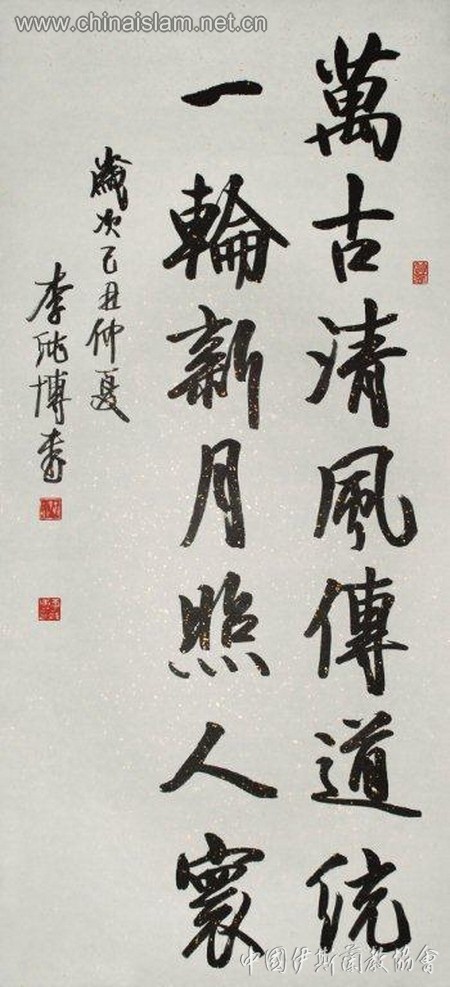 www.chinaislam.net.cn
萬古清風傳道統
一輪新月照人寰
歲次己丑仲夏
李純博書
中國伊斯蘭教協會